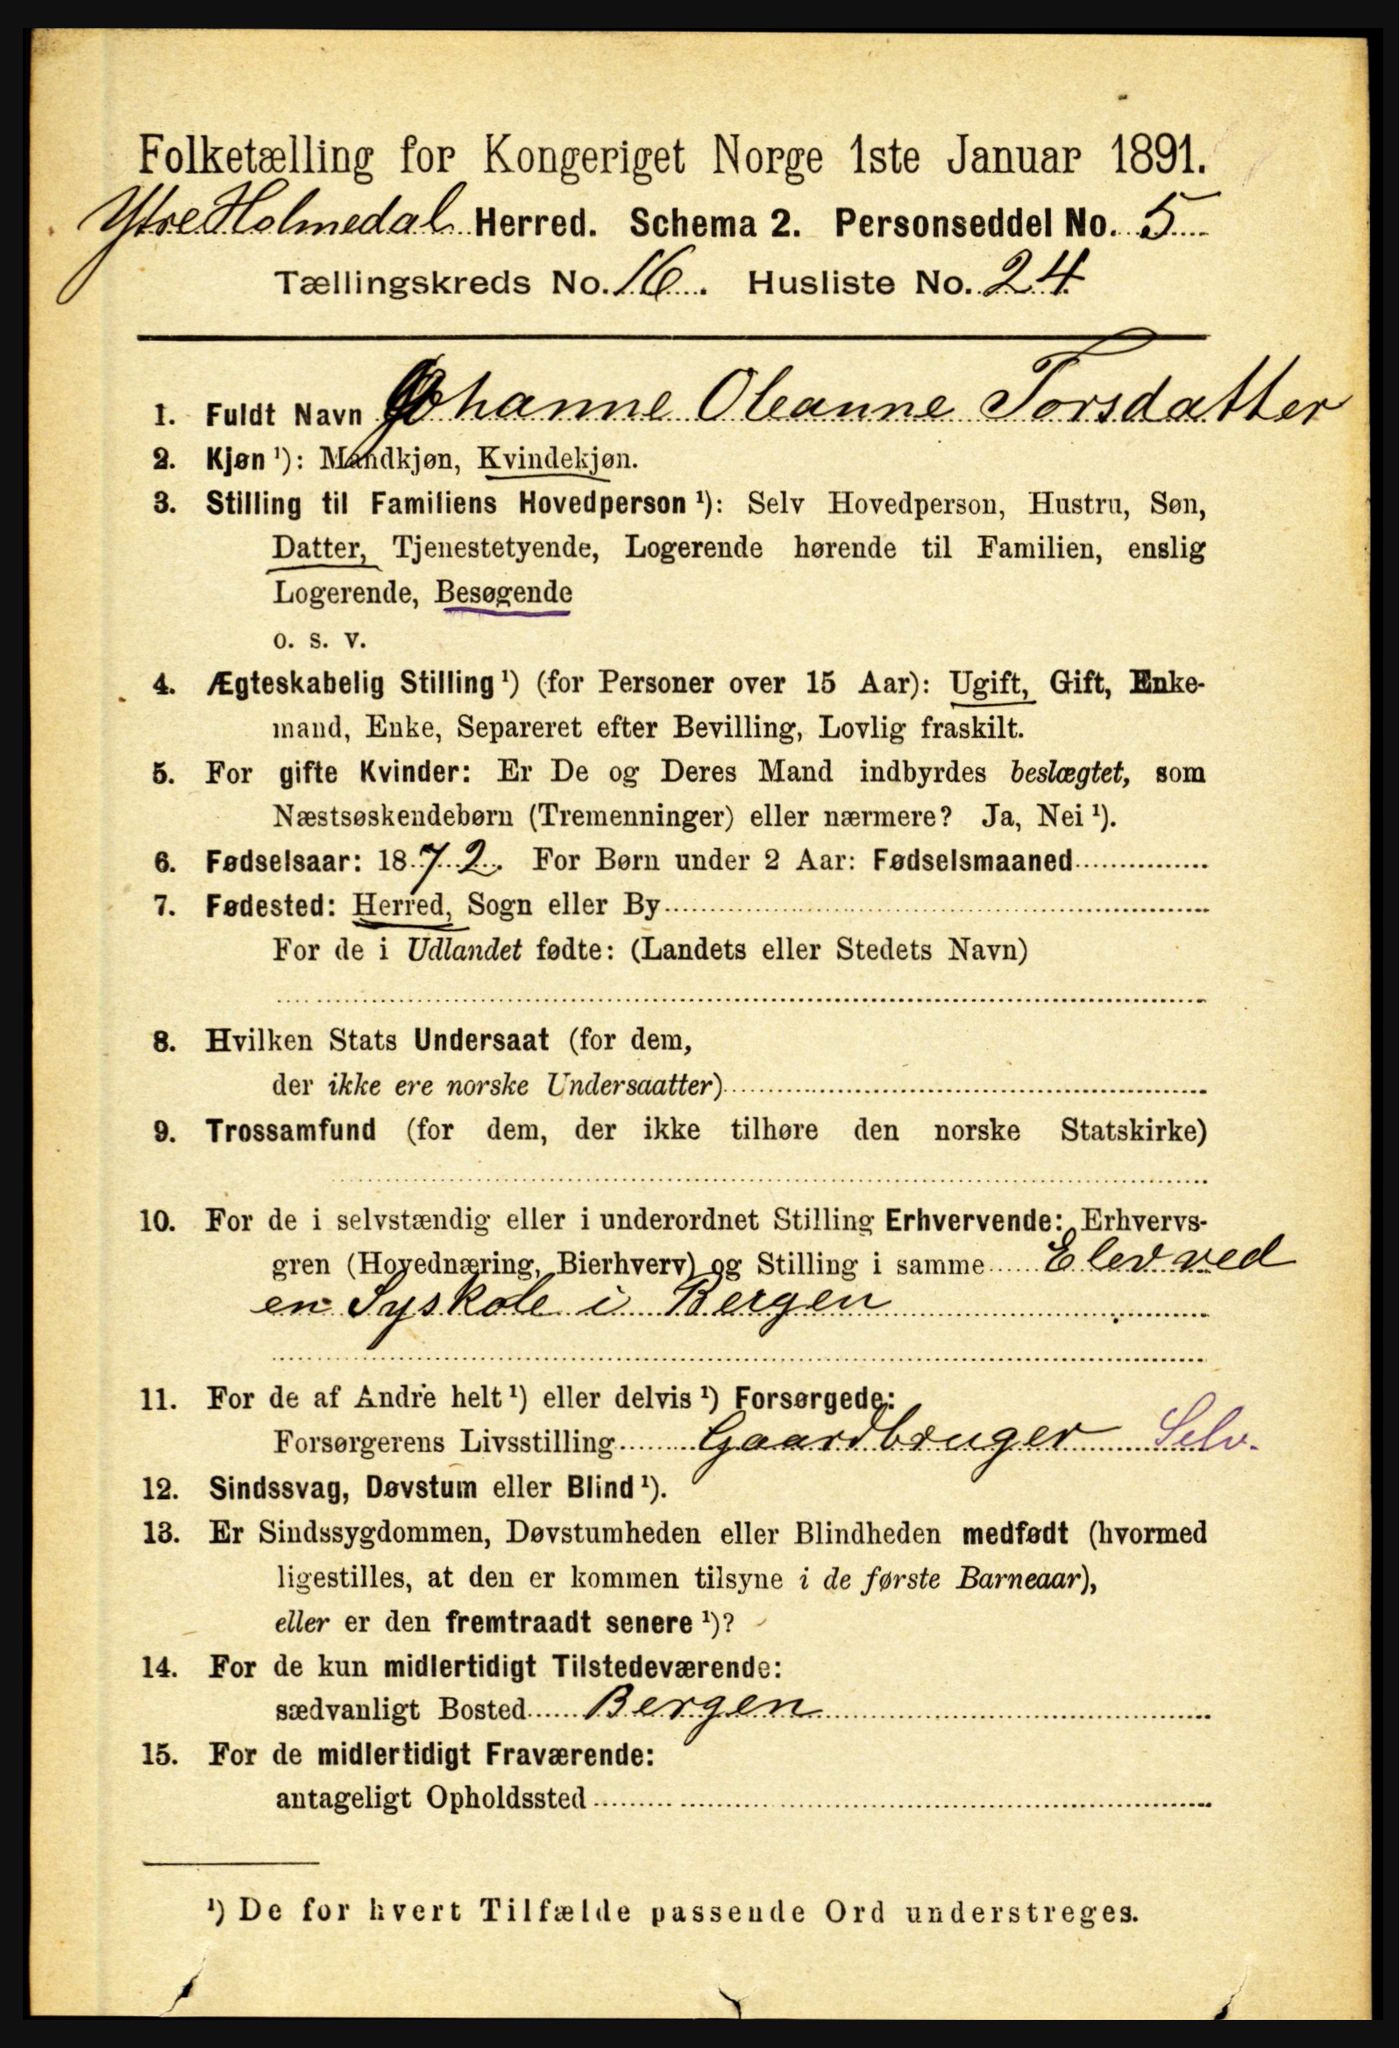 Folketælling for Kongeriget Norge 1ste Januar 1891.
Ytre Holmedal Herred. Schema 2. Personseddel No. 5
Tællingskreds No. 16. Husliste No. 24
1. Fuldt Navn Johanne Oleanne Torsdatter
2. Kjøn ¹): Mandkjøn, Kvindekjøn.
3. Stilling til Familiens Hovedperson ¹): Selv Hovedperson, Hustru, Søn,
Datter, Tjenestetyende, Logerende hørende til Familien, enslig
Logerende, Besøgende
o. s. v.
4. Ægteskabelig Stilling ¹) (for Personer over 15 Aar): Ugift, Gift, Enke-
mand, Enke, Separeret efter Bevilling, Lovlig fraskilt.
5. For gifte Kvinder: Er De og Deres Mand indbyrdes beslægtet, som
Næstsøskendebørn (Tremenninger) eller nærmere? Ja, Nei ¹).
6. Fødselsaar: 1872. For Børn under 2 Aar: Fødselsmaaned
7. Fødested: Herred, Sogn eller By
For de i Udlandet fødte: (Landets eller Stedets Navn)
8. Hvilken Stats Undersaat (for dem,
der ikke ere norske Undersaatter)
9. Trossamfund (for dem, der ikke tilhøre den norske Statskirke)
10. For de i selvstændig eller i underordnet Stilling Erhvervende: Erhvervs-
gren (Hovednæring, Bierhverv) og Stilling i samme Elev ved
en Syskole i Bergen
11. For de af Andre helt ¹) eller delvis ¹) Forsørgede:
Forsørgerens Livsstilling Gaardbruger Selv.
12. Sindssvag, Døvstum eller Blind ¹).
13. Er Sindssygdommen, Døvstumheden eller Blindheden medfødt (hvormed
ligestilles, at den er kommen tilsyne i de første Barneaar),
eller er den fremtraadt senere ¹)?
14. For de kun midlertidigt Tilstedeværende:
sædvanligt Bosted Bergen
15. For de midlertidigt Fraværende:
antageligt Opholdssted
¹) De for hvert Tilfælde passende Ord understreges.